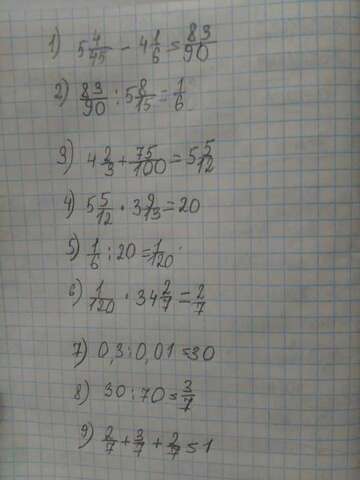 1) 5 4/45 - 4 1/6 = 83/90
2) 83/90 : 5 8/15 = 1/6
3) 4 2/3 + 75/100 = 5 5/12
4) 5 5/12 · 3 9/13 = 20
5) 1/6 : 20 = 1/120
6) 1/120 · 34 2/7 = 2/7
7) 0,3 : 0,01 = 30
8) 30 : 70 = 3/7
9) 2/7 + 3/7 + 2/7 = 1